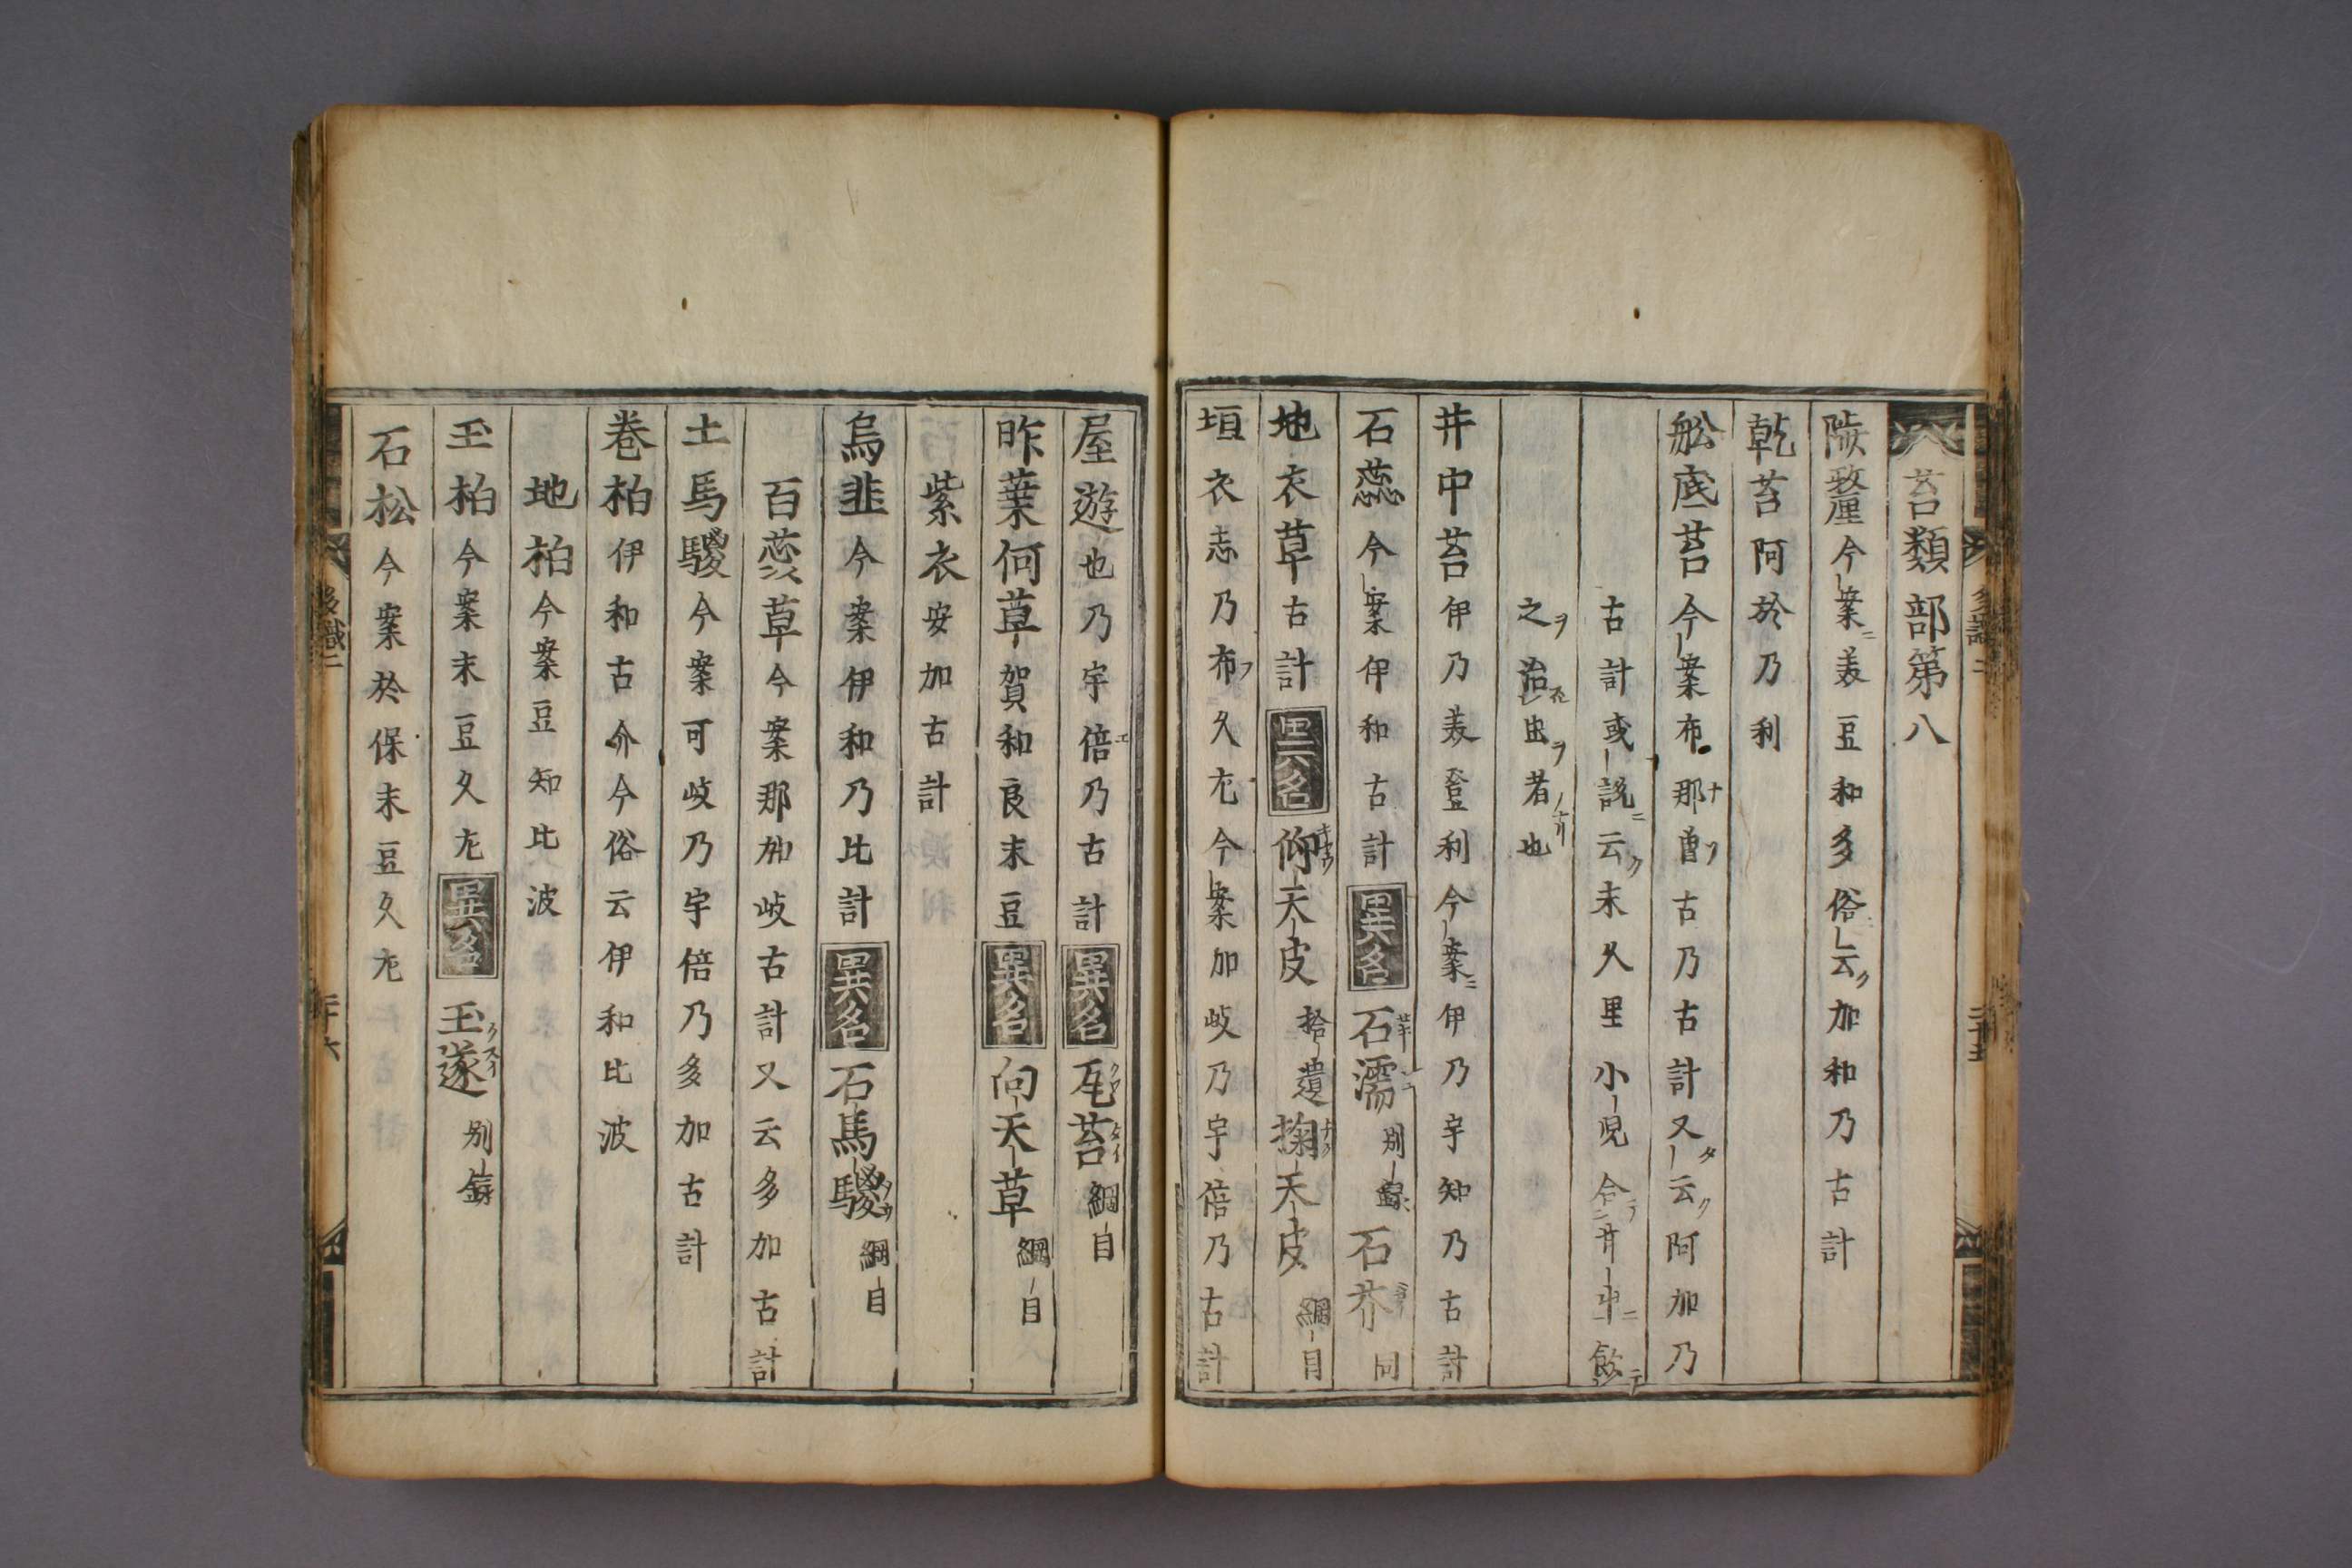 苔類部第八
陟釐今案ニ美豆和多俗云ク加和乃古計
乾苔阿於乃利
舩底苔今案布那曽古乃古計又云ク阿加乃
古計或説ニ云ク末久里小児合井中ニ飲テ
之ヲ治虫ヲ者也
井中苔伊乃美登利今案ニ伊乃宇知乃古計
石蕊今案伊和古計異名石濡別録石芥同
地衣草古計異名仰天皮拾遺掬天皮綱目
垣衣志乃布久尢今案加岐乃宇倍乃古計
屋遊也乃宇倍乃古計異名瓦苔綱目
昨葉何草賀和良末豆異名向天草綱目
紫衣安加古計
烏韭今案伊和乃比計異名石馬騣綱目
百蕊草今案那加岐古計又云多加古計
土馬騣今案可岐乃宇倍乃多加古計
巻柏伊和古介今俗云伊和比波
地柏今案豆知比波
玉柏今案末豆久尢異名玉遂別録
石松今案於保末豆久尢